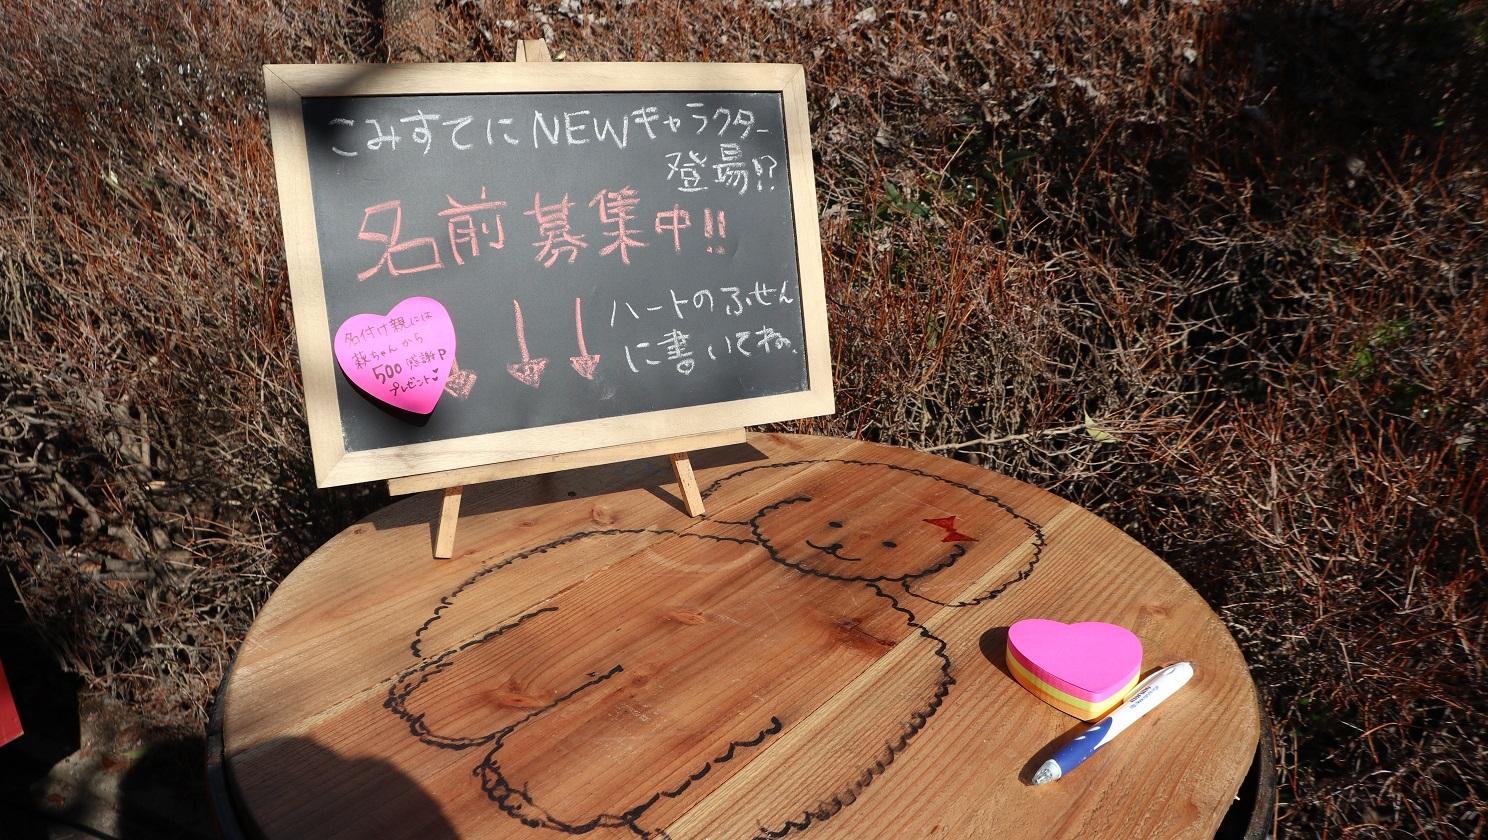 こみすてにNEWキャラクター
登場!?
名前募集中!!
ハートのふせん
に書いてね。
名付け親には
ちゃんから
500感謝P
プレゼント♥